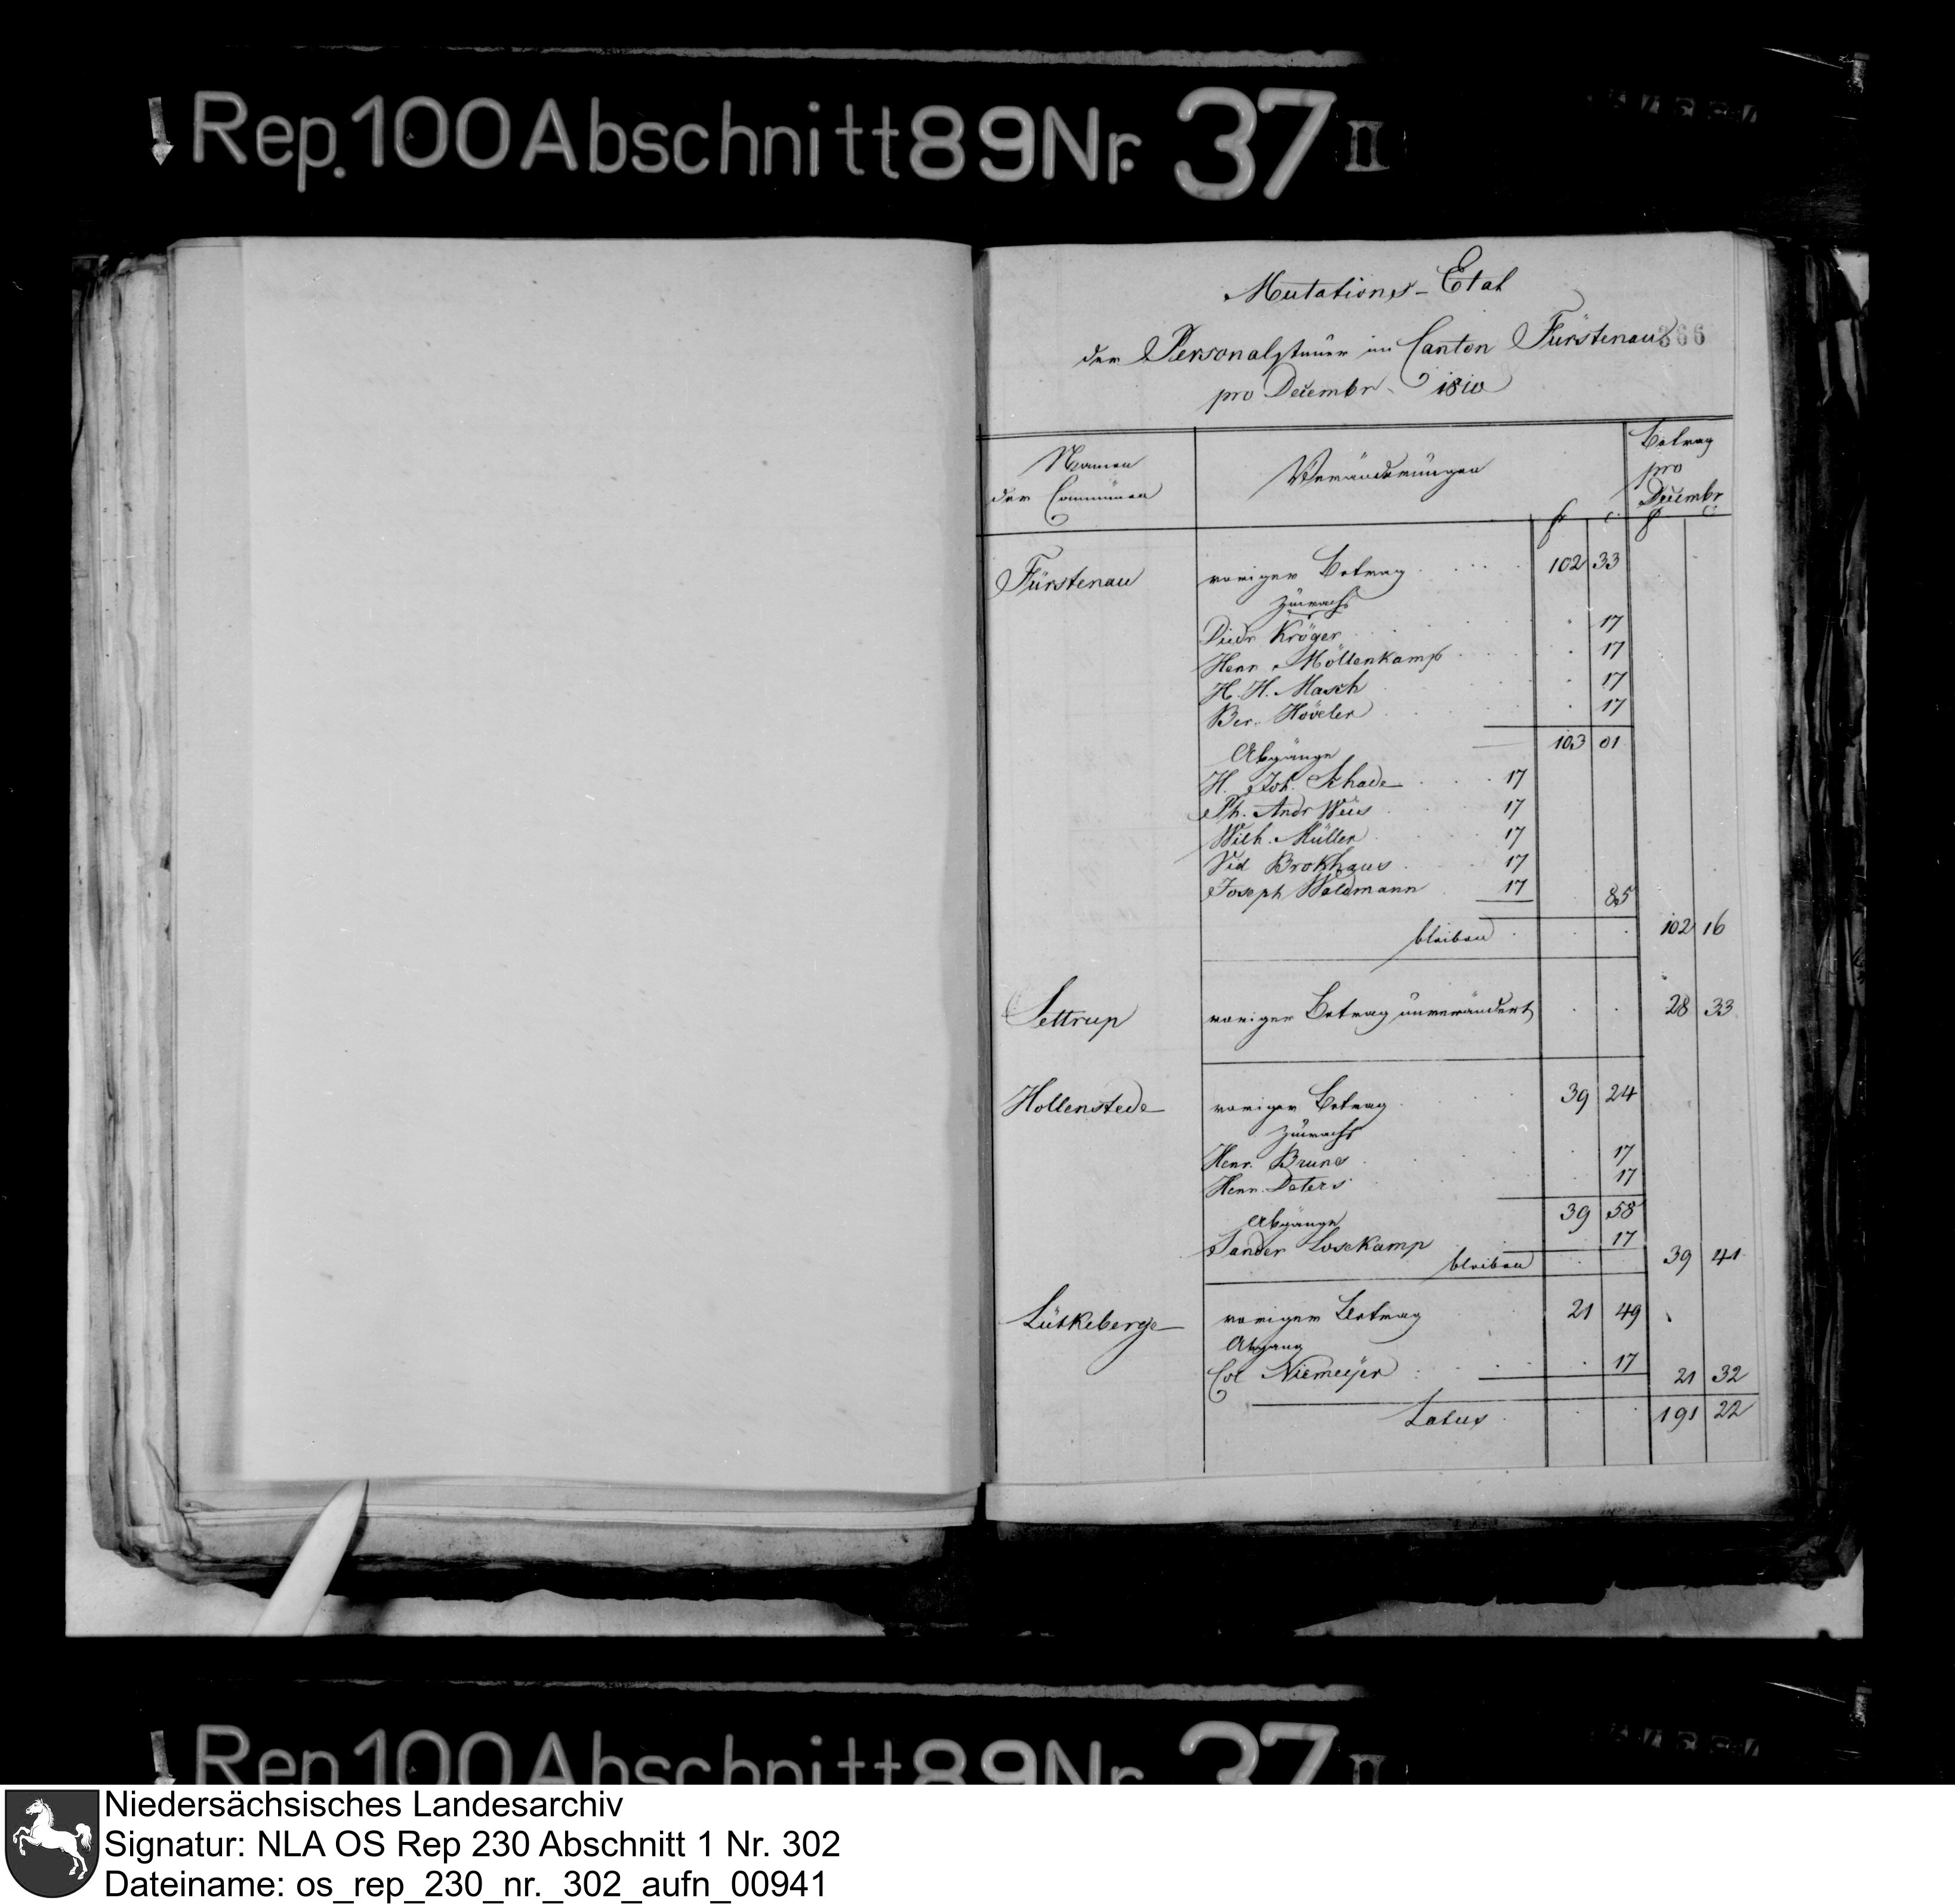 Rep. 100 Abschnitt 89 Nr. 37 II
Mutations-Etat
der Personalsteuer im Canton Fürstenau 366
pro Decembr. 1810
Namen der Communen Veränderungen Betrag pro Decembr
fr c. fr C
Fürstenau voriger Betrag 102 33
Zuwachs
Diedr Kröger 17
Henr Möllenkamp 17
H. H. Masch 17
Ber. Höveler 17
103 01
Abgänge
H. Joh. Schade 17
Ph. Andr Weis 17
Wilh. Müller 17
Vid Brokhaus 17
Joseph Waldmann 17 85
bleiben 102 16
Settrup voriger Betrag unverändert 28 33
Hollenstede voriger Betrag 39 24
Zuwachs
Henr. Bruns 17
Henr. Deters 17
39 58
Abgänge
Sander Losekamp 17
bleiben 39 41
Lütkeberge voriger Betrag 21 49
Abgang
Col Niemeijer 17 21 32
Latus 191 22
Rep. 100 Abschnitt 89 Nr. 37 II
Niedersächsisches Landesarchiv
Signatur: NLA OS Rep 230 Abschnitt 1 Nr. 302
Dateiname: os_rep_230_nr._302_aufn_00941